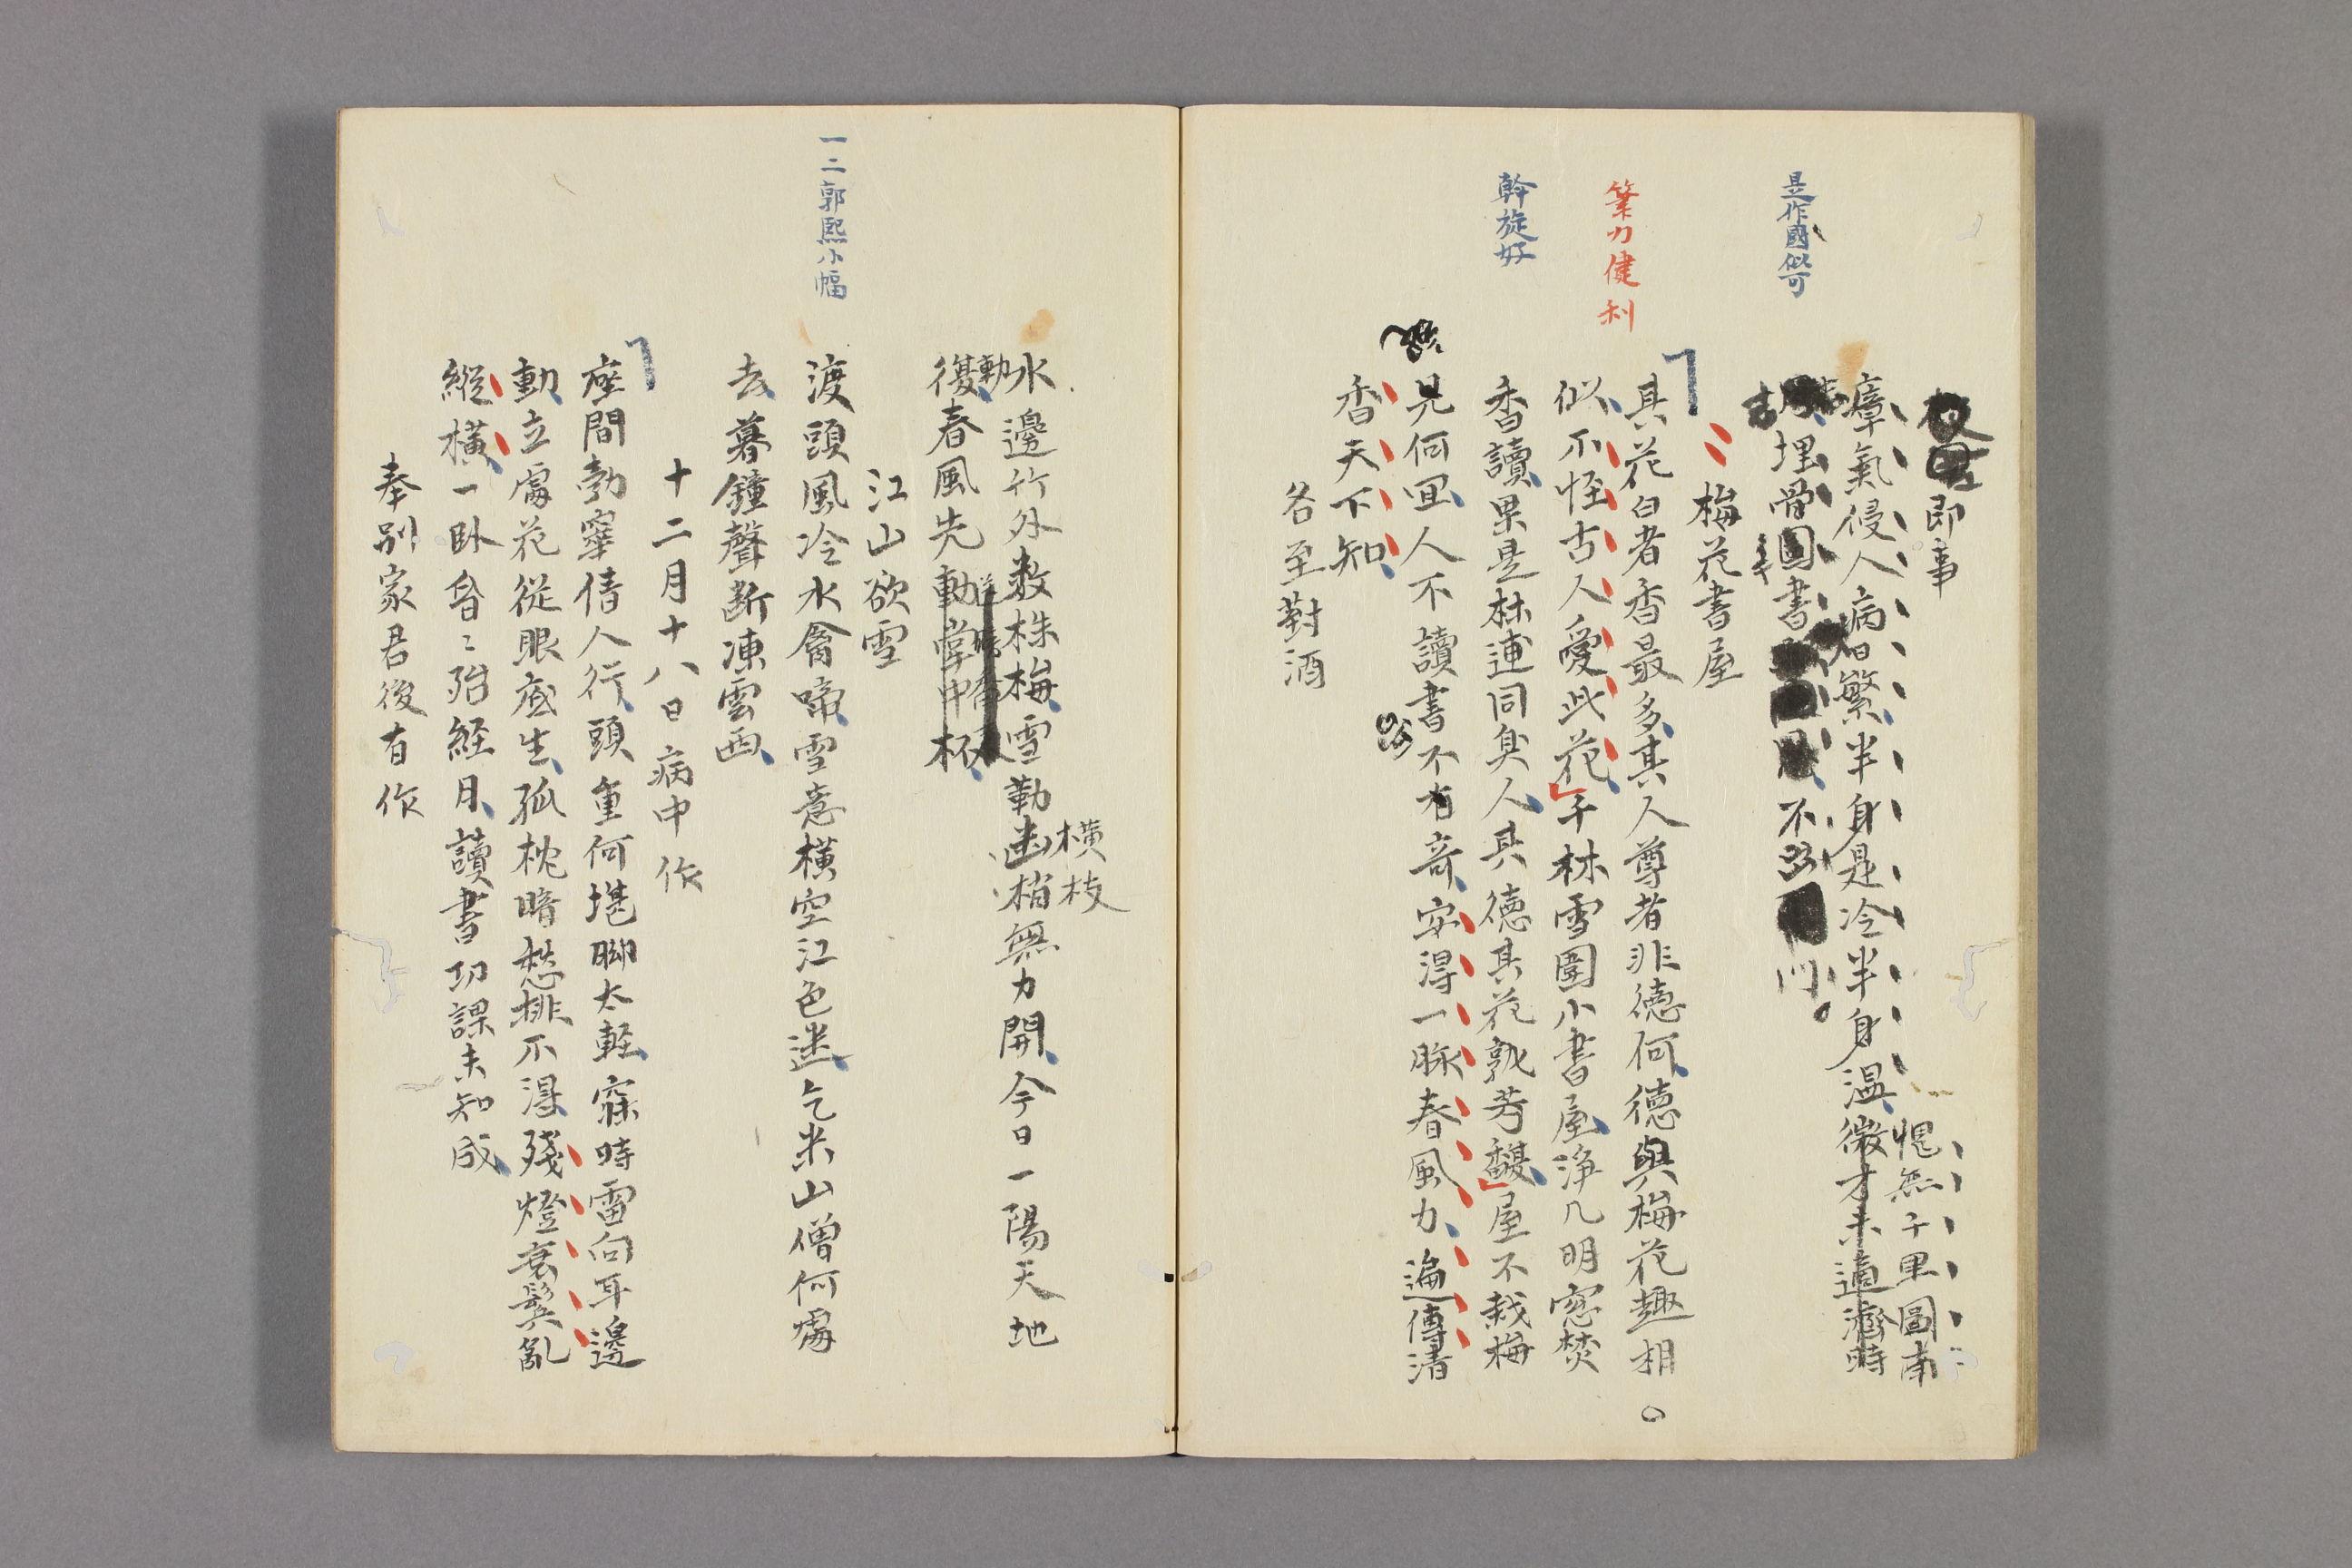 是作國似可
筆力健利
幹旋好
即事
瘴氣侵人病日繁半身是冷半身温微才未適濟時
愧無千里圖南
埋骨圖書不門
梅花書屋
其花白者香最多其人尊者非德何德與梅花趣相
似不怪古人愛此花千林雪圍小書屋淨几明窓焚
香讀果是林逋同臭人其德其花孰芳馥屋不栽梅
兄何宜人不讀書不有奇安得一脈春風力遍傳清
香天下知
冬至對酒
一二郭熙小幅
水邊竹外數株梅雪勒梢無力開今日一陽天地
橫枝
動
復春風先動掌中杯
江山欲雪
渡頭風冷水禽啼雪意橫空江色迷乞米山僧何處
去暮鐘聲斷凍雲西
十二月十八日病中作
座間勃窣倩人行頭重何堪脚太輕寐時雷向耳邊
動立處花從眼底生孤枕暗愁排不得殘燈衰鬢亂
縱橫一臥昏〻殆経月讀書功課未知成
奉別家君後有作